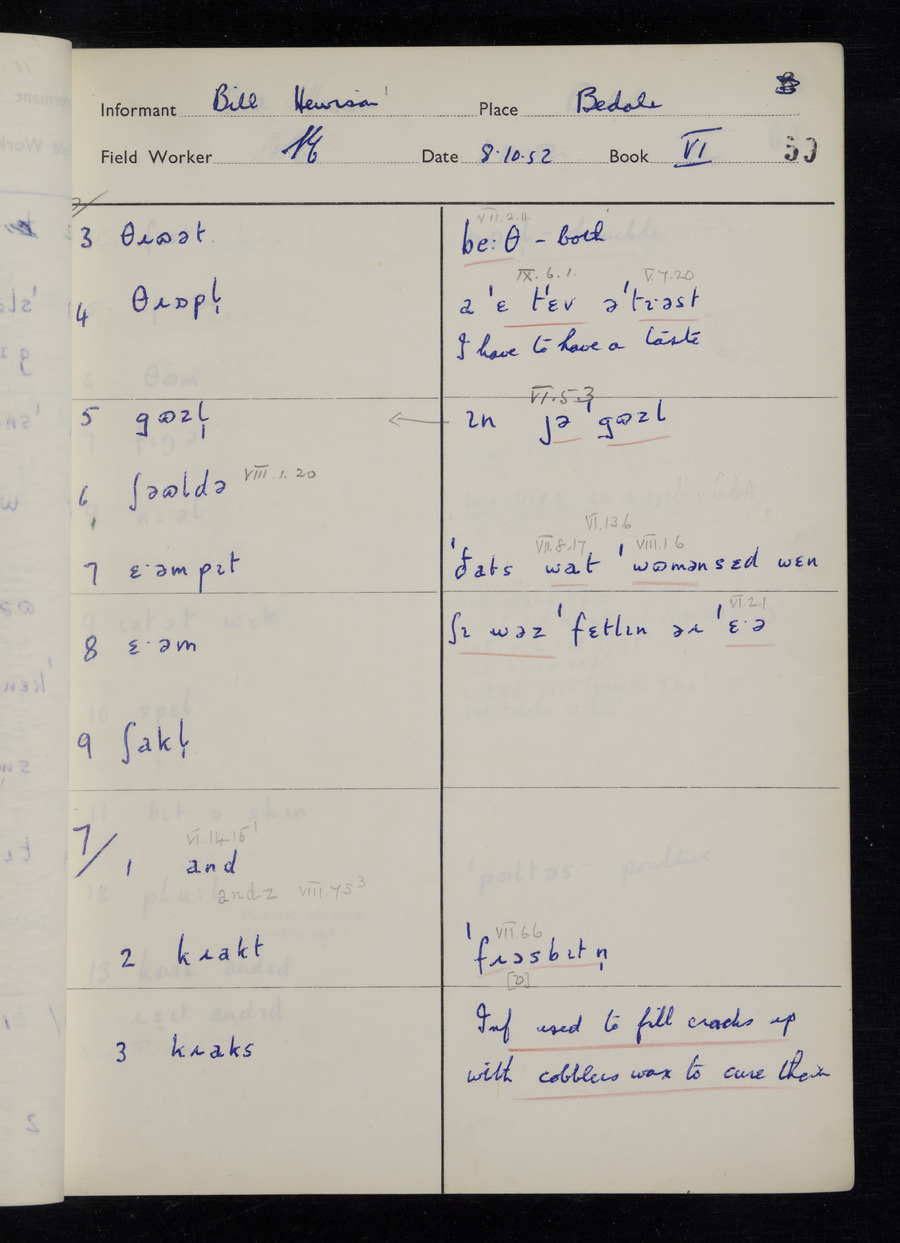 Informant Bill Hewison Place Bedale
Field Worker Date 8.10.52 Book VI 59
3 θɹɷət
VII.2.11
be:θ - both
4 θɹɒpl̩
IX.6.1. V.7.20
a 'ɛ t'ɛv ə'tɪəst
I have to have a taste
5 gɷzl̩
VI.5.3
ɪn jə 'gɷzl
6 ʃəɷldə VIII.1.20
VI.13.6
7 ɛ·əmpɪt
VII.8.17 VIII.1.6
'ðats wat 'wɷmən sɛd wɛn
8 ɛ·əm
VI.2.1
ʃɪ wəz 'fɛtlɪn əɹ 'ɛ·ə
9 ʃakl̩
7/
VI.14.15
1 and
andz VIII.7.5
2 kɹakt
VII.6.6
'fɹɔsbɪtn̩
[ɒ]
3 kɹaks
Inf used to fill cracks up
with cobblers wax to cure them